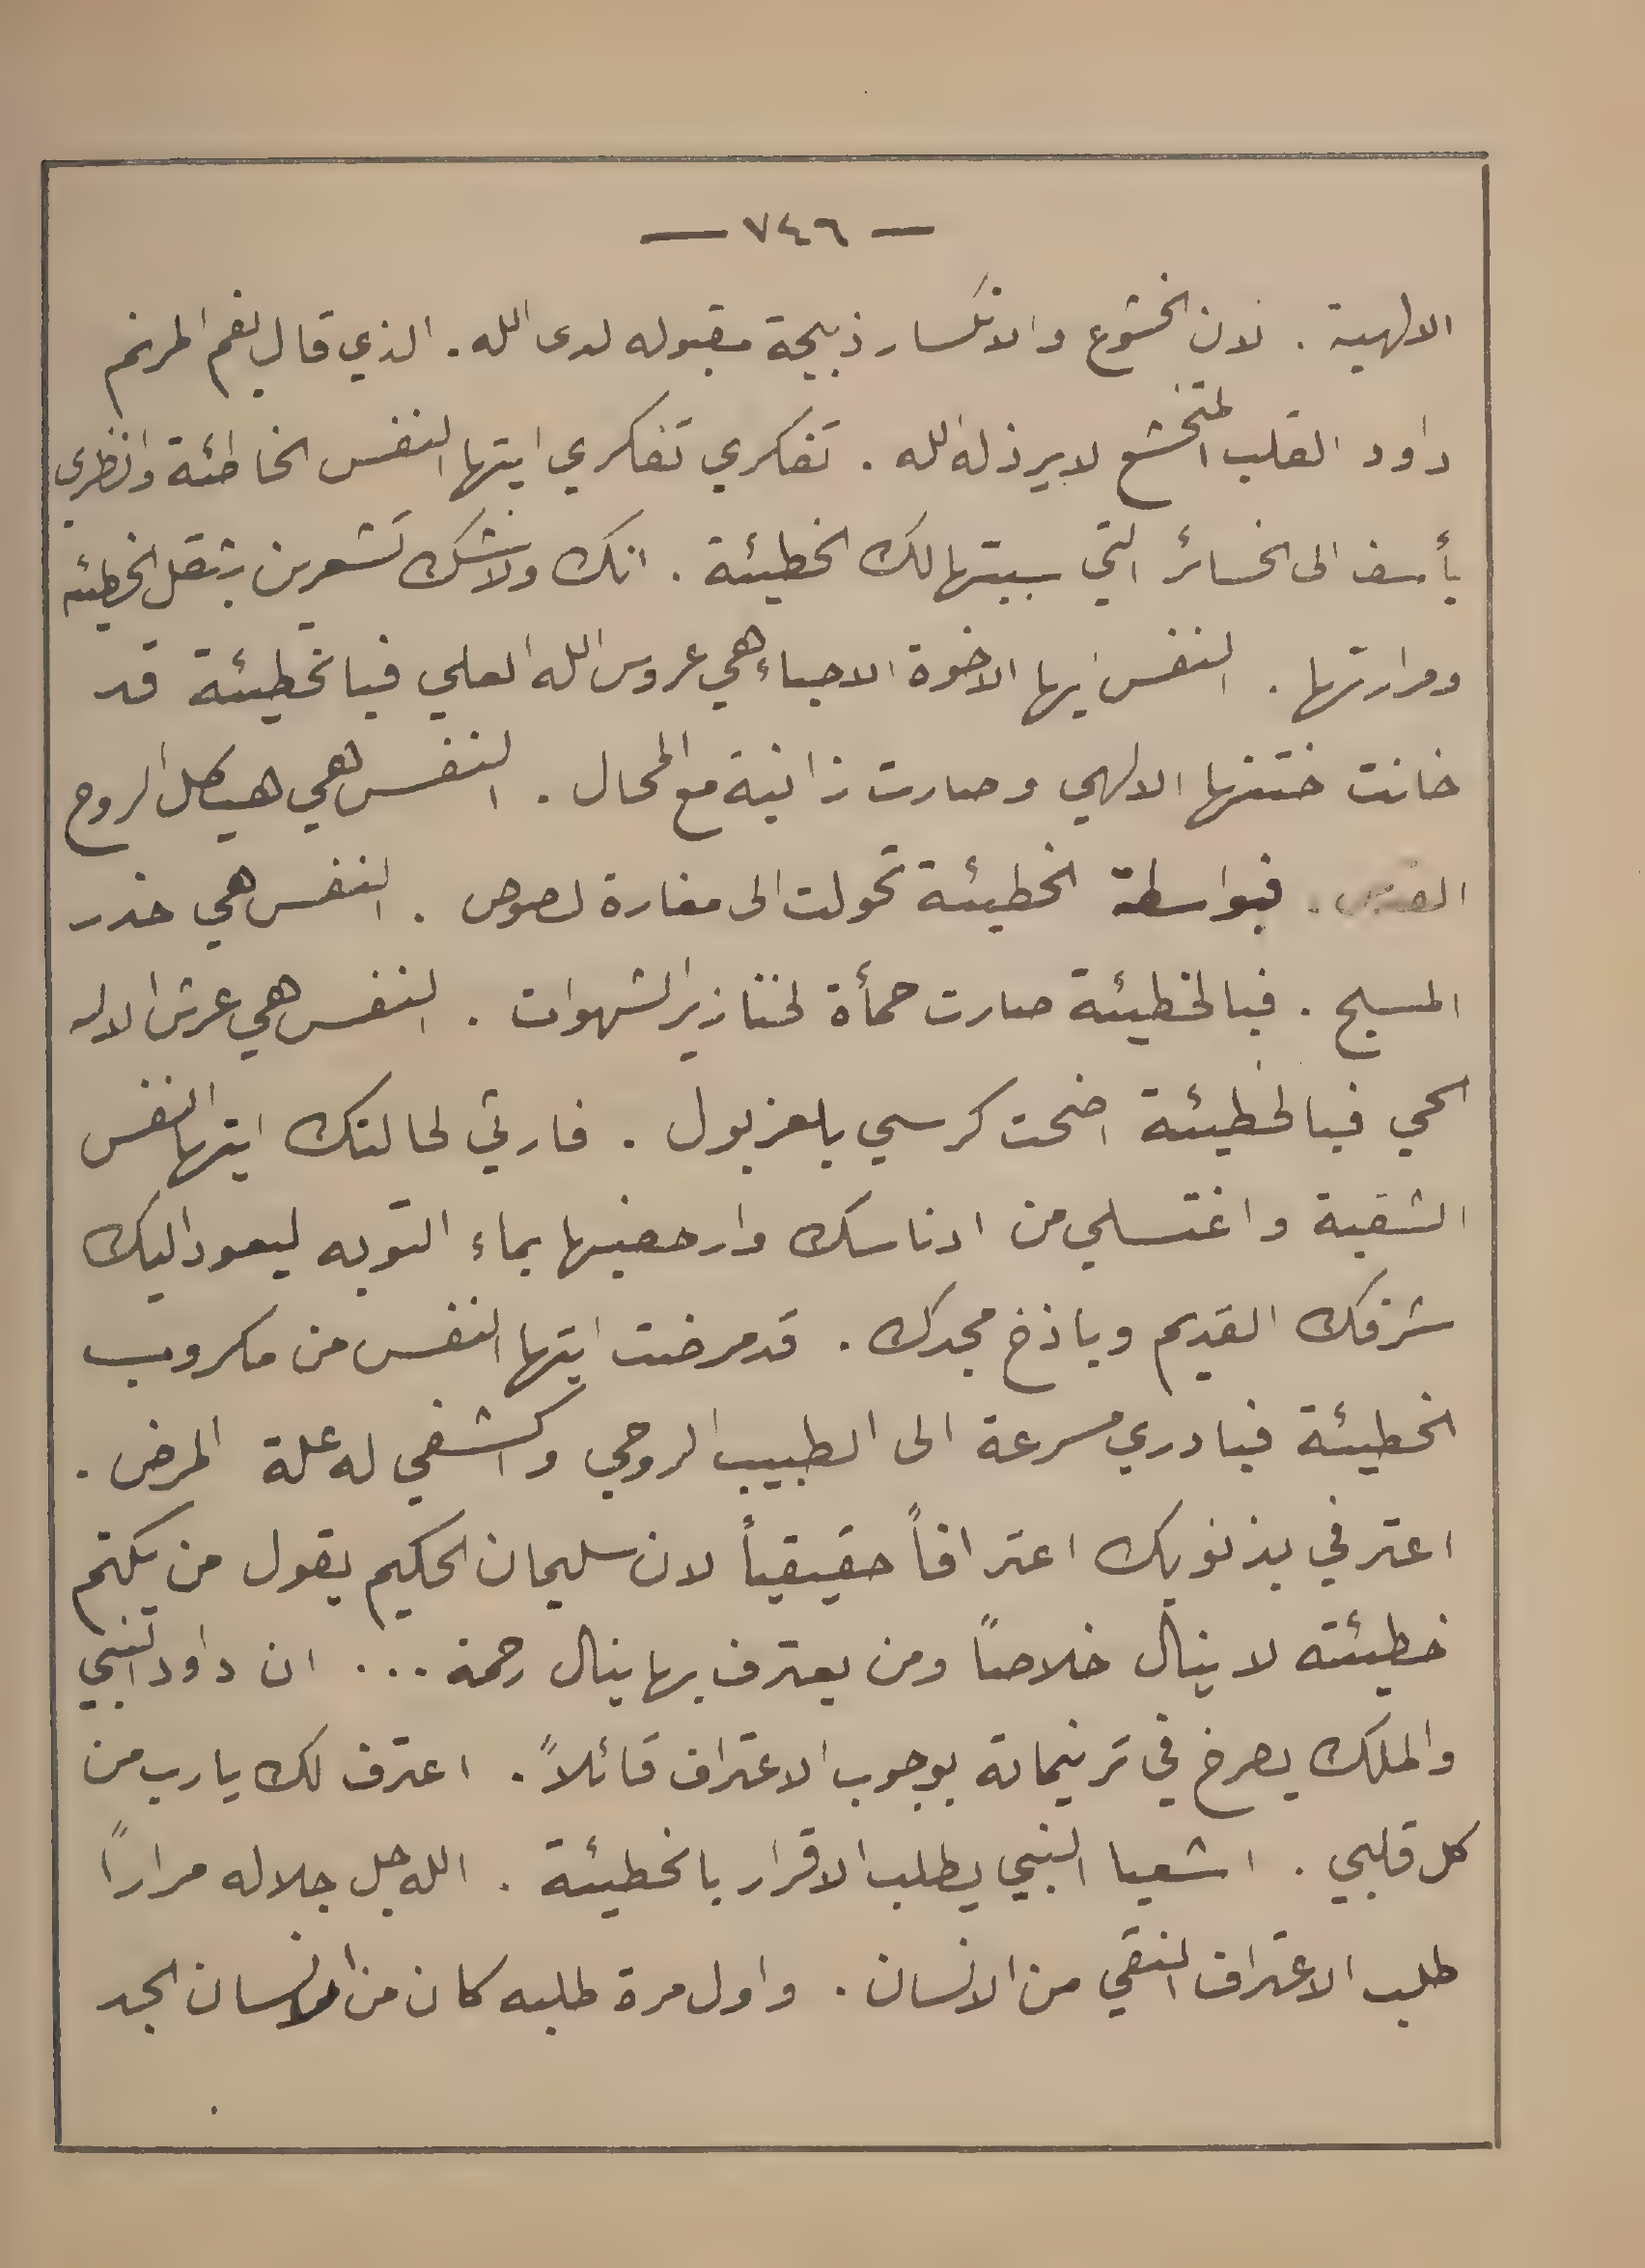 — ٧٤٦ —
الالهية . لان الخشوع والانكسار ذبيحة مقبوله لدى الله . الذي قال بفم المرنم
داود القلب المتخشع لا يرذله الله . تفكري تفكري ايتها النفس الخاطئة وانظري
بأسف الى الخسائر التي سببتها لك الخطيئة . انك ولا شك تشعرين بثقل الخطيئه
ومرارتها . النفس ايها الاخوة الاحباء هي عروس الله العلي فبالخطيئة قد
خانت ختنها الالهي وصارت زانية مع المحال . النفس هي هيكل الروح
القدس . فبواسطة الخطيئة تحولت الى مغارة لصوص . النفس هي خدر
المسيح . فبالخطيئة صارت حمأة لخنازير الشهوات . النفس هي عرش الاله
الحي فبالخطيئة اضحت كرسي بلعزبول . فارثي لحالتك ايتها النفس
الشقية واغتسلي من ادناسك وارحضيها بماء التوبه ليعود اليك
شرفك القديم وباذخ مجدك . قد مرضت ايتها النفس من مكروب
الخطيئة فبادري مسرعة الى الطبيب الروحي واكشفي له علة المرض .
اعترفي بذنوبك اعترافاً حقيقياً لان سليمان الحكيم يقول من يكتم
خطيئته لا ينال خلاصاً ومن يعترف بها ينال رحمة ... ان داود النبي
والملك يصرخ في ترنيماته بوجوب الاعتراف قائلاً . اعترف لك يارب من
كل قلبي . اشعيا النبي يطلب الاقرار بالخطيئة . الله جل جلاله مراراً
طلب الاعتراف النقي من الانسان . واول مرة طلبه كان من الانسان الجد